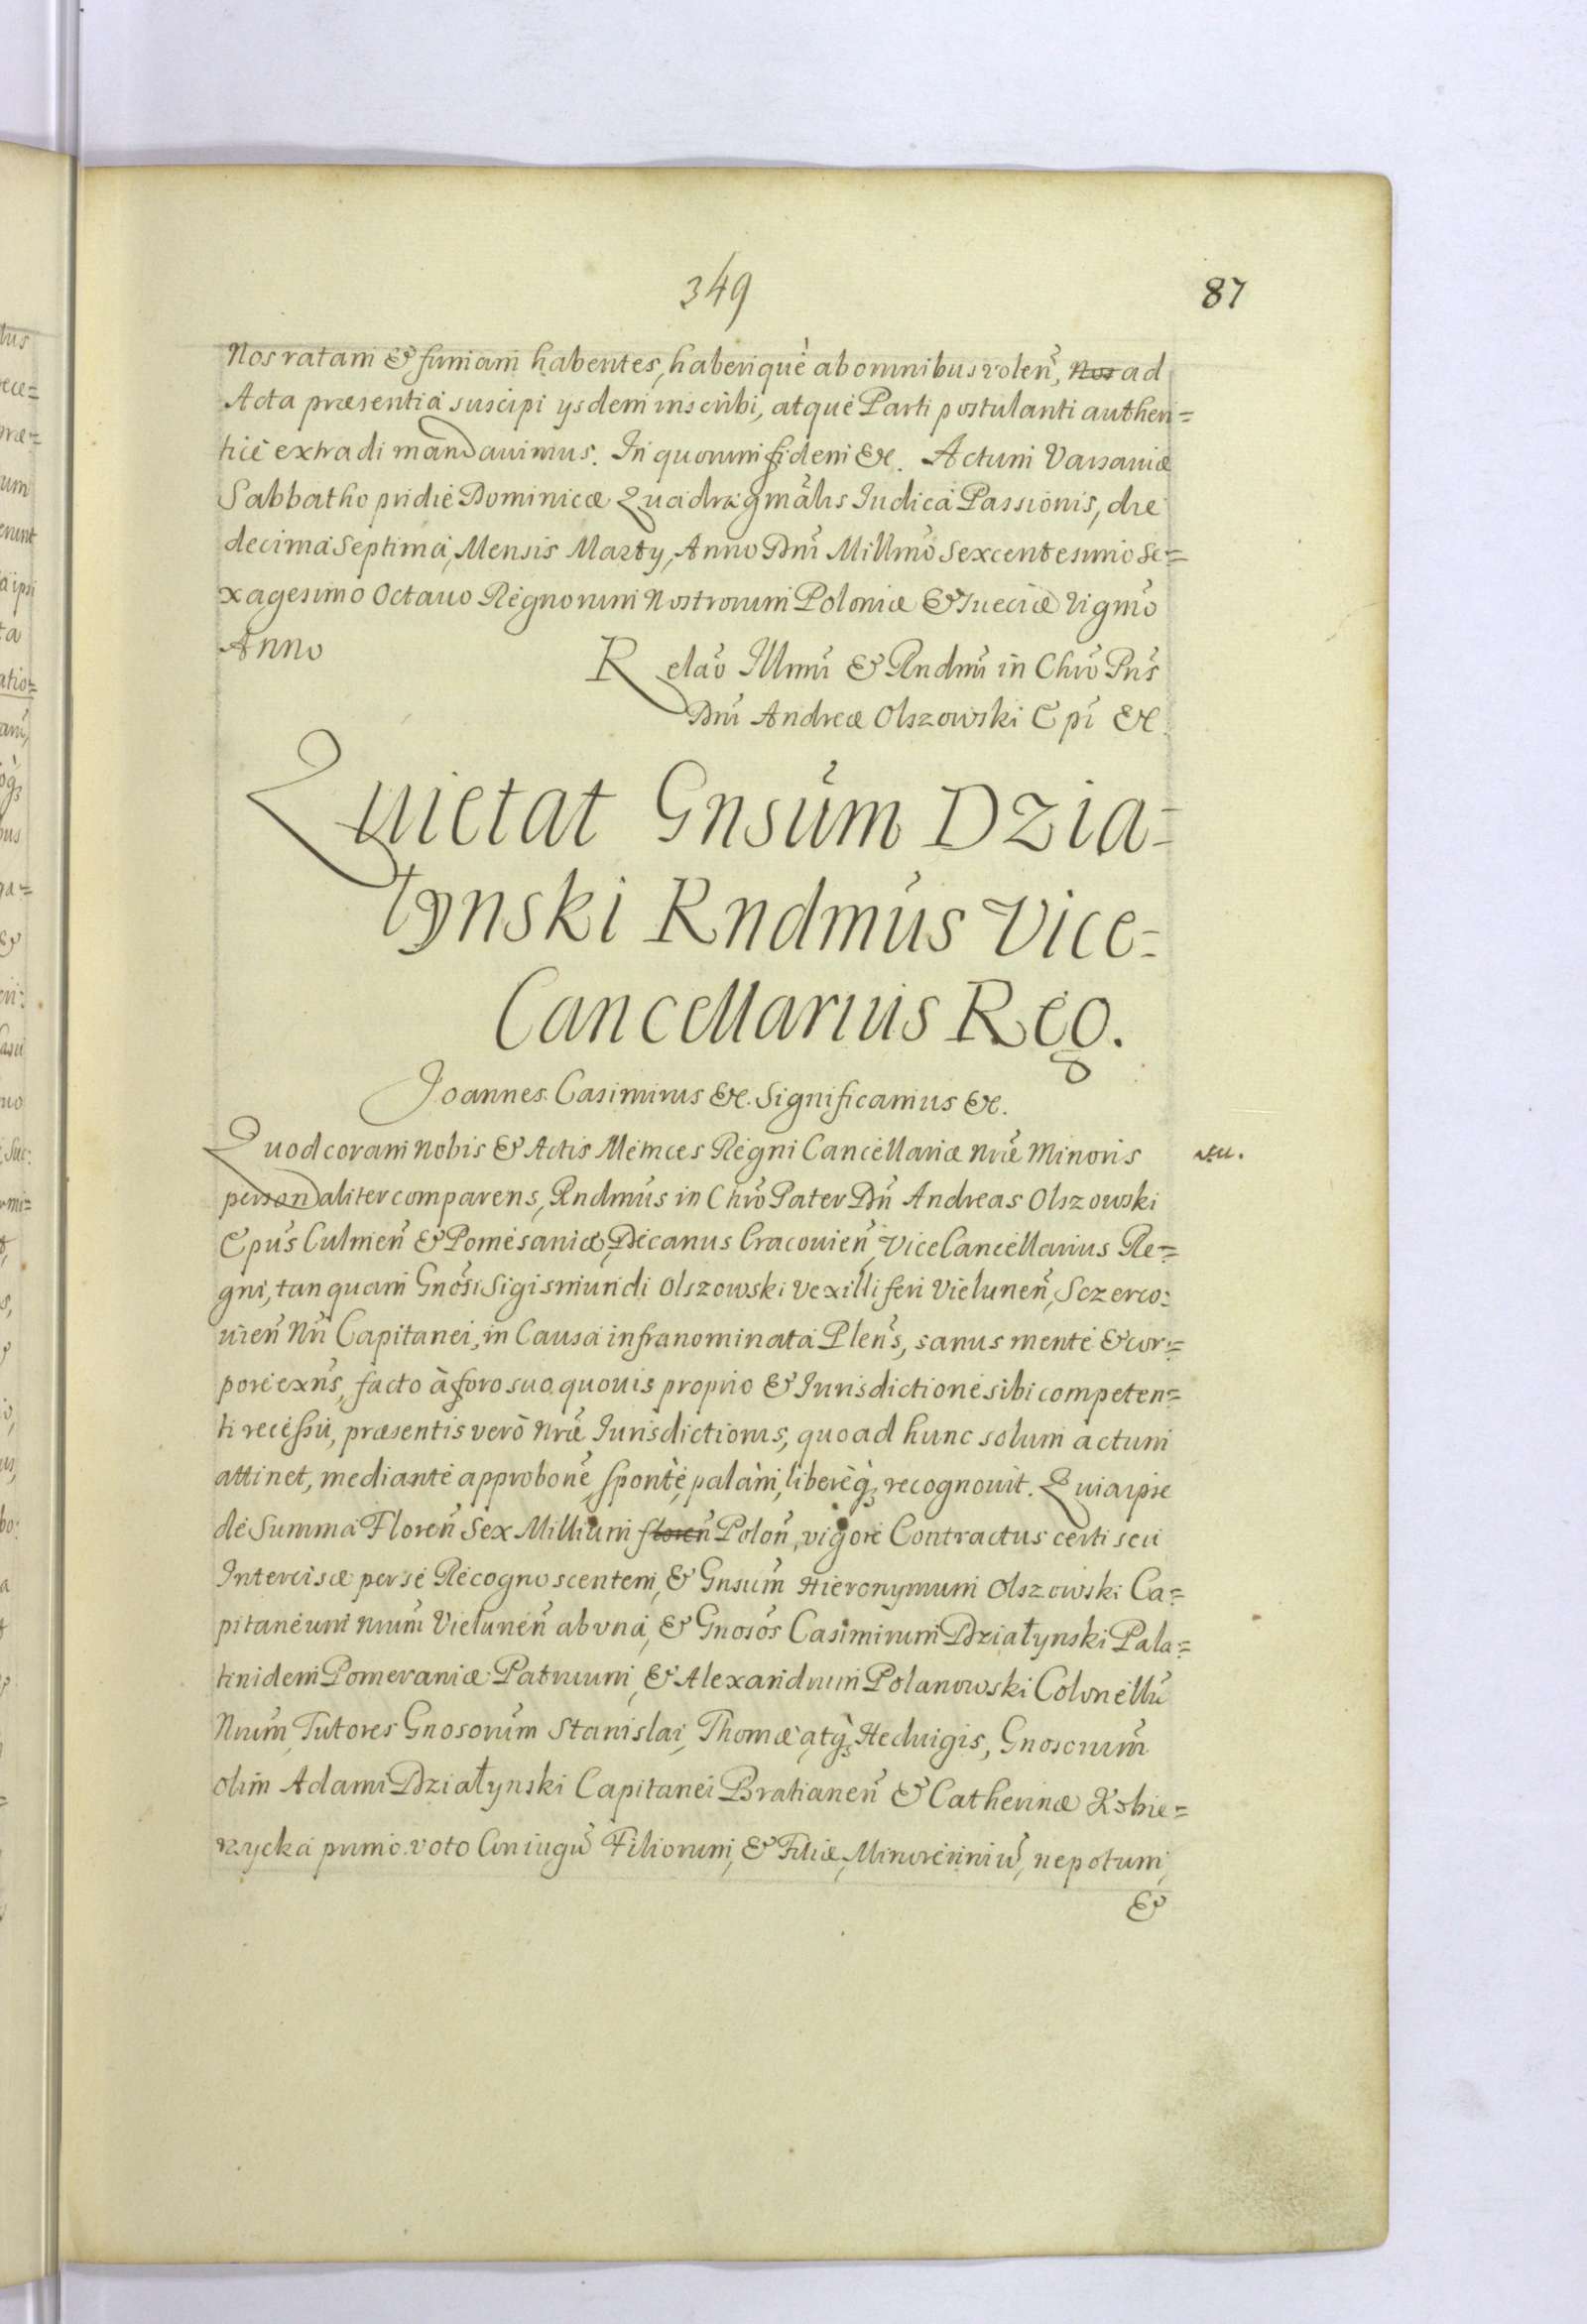 349
87
Nos ratam & firmam habentes, haberique ab omnibus volen̄, Nos ad
Acta præsentia suscipi ysdem inscribi, atque Parti postulanti authen=
tice extradi mandavimus. In quorum fidem &c. Actum Varsaviæ
Sabbatho pridie Dominicæ Quadragmālis Iudica Passionis, die
decima Septima, Mensis Marty, Anno Dnī Millmō Sexcentesimo Se=
xagesimo Octavo Regnorum Nostrorum Poloniæ & Sueciæ Vigmō
Anno
Relaō Illmi & Rndmi in Chrō Pris
Dnī Andreæ Olszowski Epī &c.
Quietat Gnsūm Dzia=
łynski Rndmūs Vice=
Cancellarius Reg.
Joannes Casimirus &c. Significamus &c.
Quod coram Nobis & Actis Metrices Regni Cancellariæ Nræ Minoris
personaliter comparens, Rndmūs in Chrō Pater Dn̄ Andreas Olszowski
Epūs Culmen̄ & Pomesaniæ, Decanus Cracovien̄, ViceCancellarius Re=
gni, tanquam Gnōsi Sigismundi Olszowski Vexilliferi Vielunen̄, Sczerco=
vien̄ Nrī Capitanei, in Causa infranominata Plen̄s, sanus mente & cor=
pore exn̄s, facto à foro suo quovis proprio & Iurisdictione sibi competen=
ti recessu, præsentis verò Nræ Iurisdictionis, quoad hunc solum actum
attinet, mediante approbonē, sponte, palàm, libereq; recognovit. Quia ipse
de Summa Floren̄ Sex Millium floren̄ Polon̄, vigore Contractus certi seu
Intercisæ per se Recognoscentem, & Gnsūm Hieronymum Olszowski Ca=
pitaneum Nrum̄ Vielunen̄ ab una, & Gnosōs Casimirum Działynski Pala=
tinidem Pomeraniæ Patruum, & Alexandrum Polanowski Colonellū
Nrum̄, Tutores Gnosorūm Stanislai, Thomæ atq; Hedvigis, Gnosorum̄
olim Adami Działynski Capitanei Bratianen̄ & Catherinæ Kobie=
rzycka primo voto Coniugū Filiorum, & Filiæ, Minorenniū, nepotum,
&